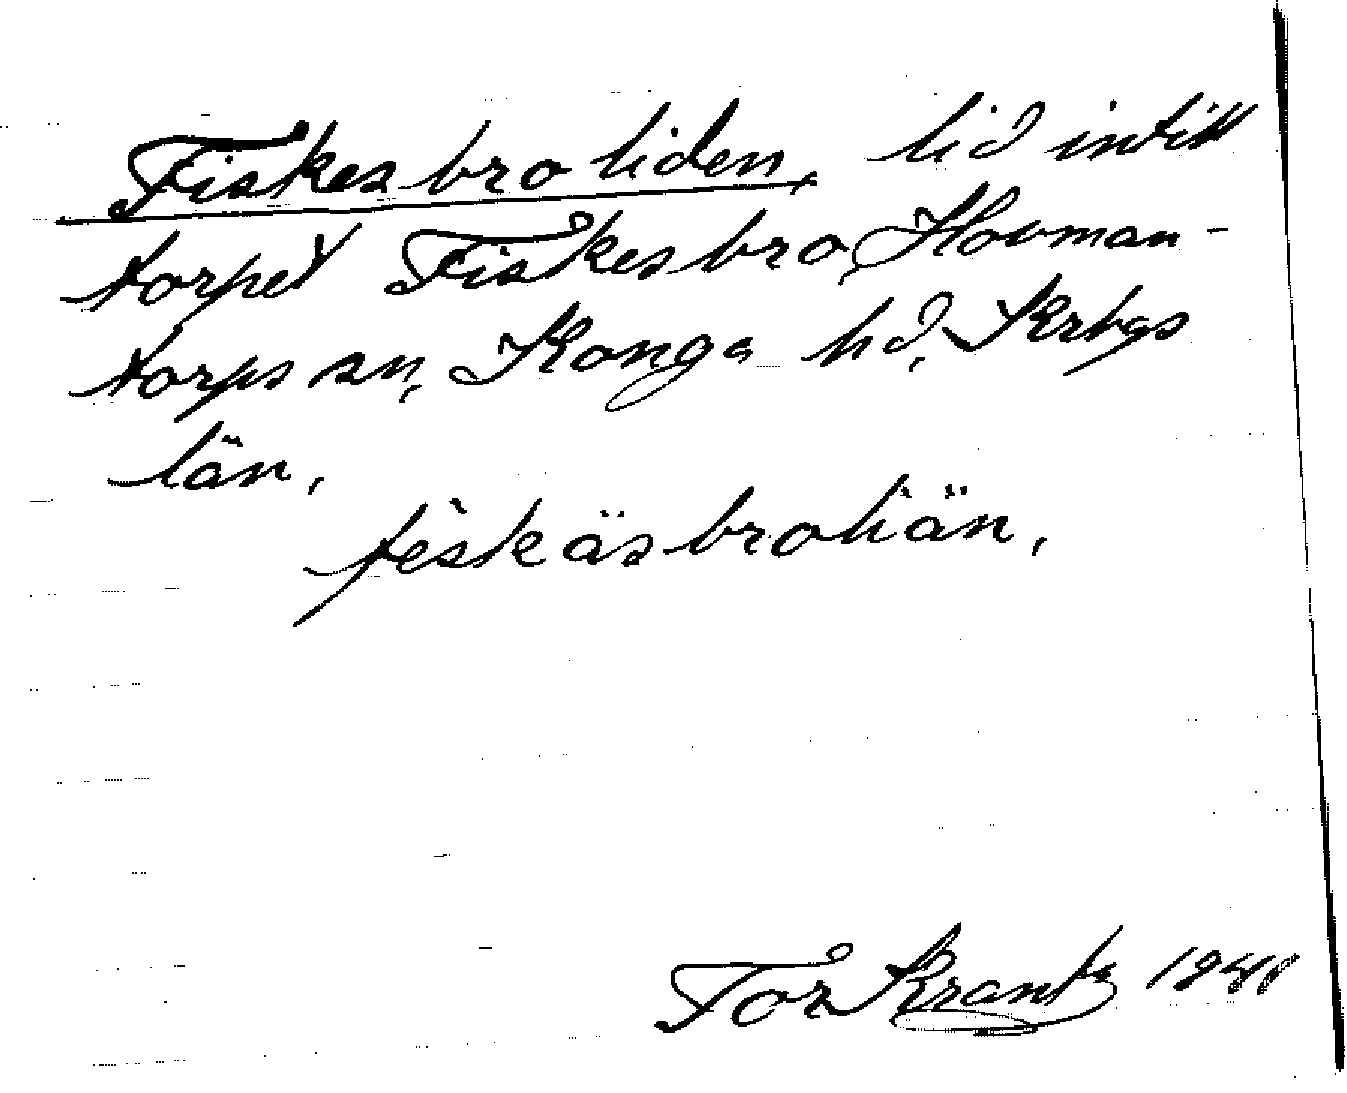 Fiskesbroliden, lid intill
torpet Fiskesbro, Hovman-
torps sn, Konga hd, Krbgs
län.
feskäsbroliän.
Tor Krantz 1941